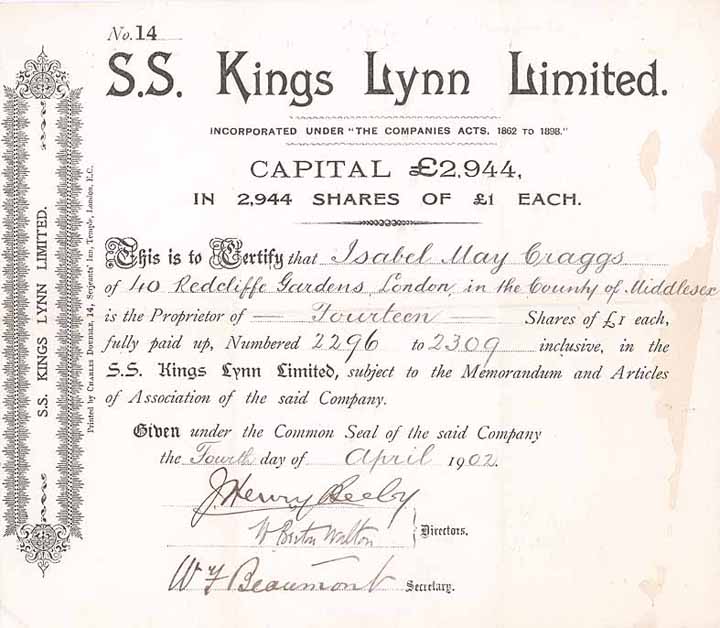 No. 14
S.S. Kings Lynn Limited.
INCORPORATED UNDER "THE COMPANIES ACTS, 1862 TO 1898."
CAPITAL £2,944,
IN 2,944 SHARES OF £1 EACH.
This is to Certify that Isabel May Craggs
of 40 Redcliffe Gardens London, in the County of Middlesex
is the Proprietor of — Fourteen — Shares of £1 each,
fully paid up, Numbered 2296 to 2309 inclusive, in the
S.S. Kings Lynn Limited, subject to the Memorandum and Articles
of Association of the said Company.
Given under the Common Seal of the said Company
the Fourth day of April 1902.
J. Henry Beeby
Walton
Directors.
W F Beaumont Secretary.
S.S. KINGS LYNN LIMITED.
Printed by CHARLES DOUBBLE, 14, Serjeants' Inn, Temple, London, E.C.